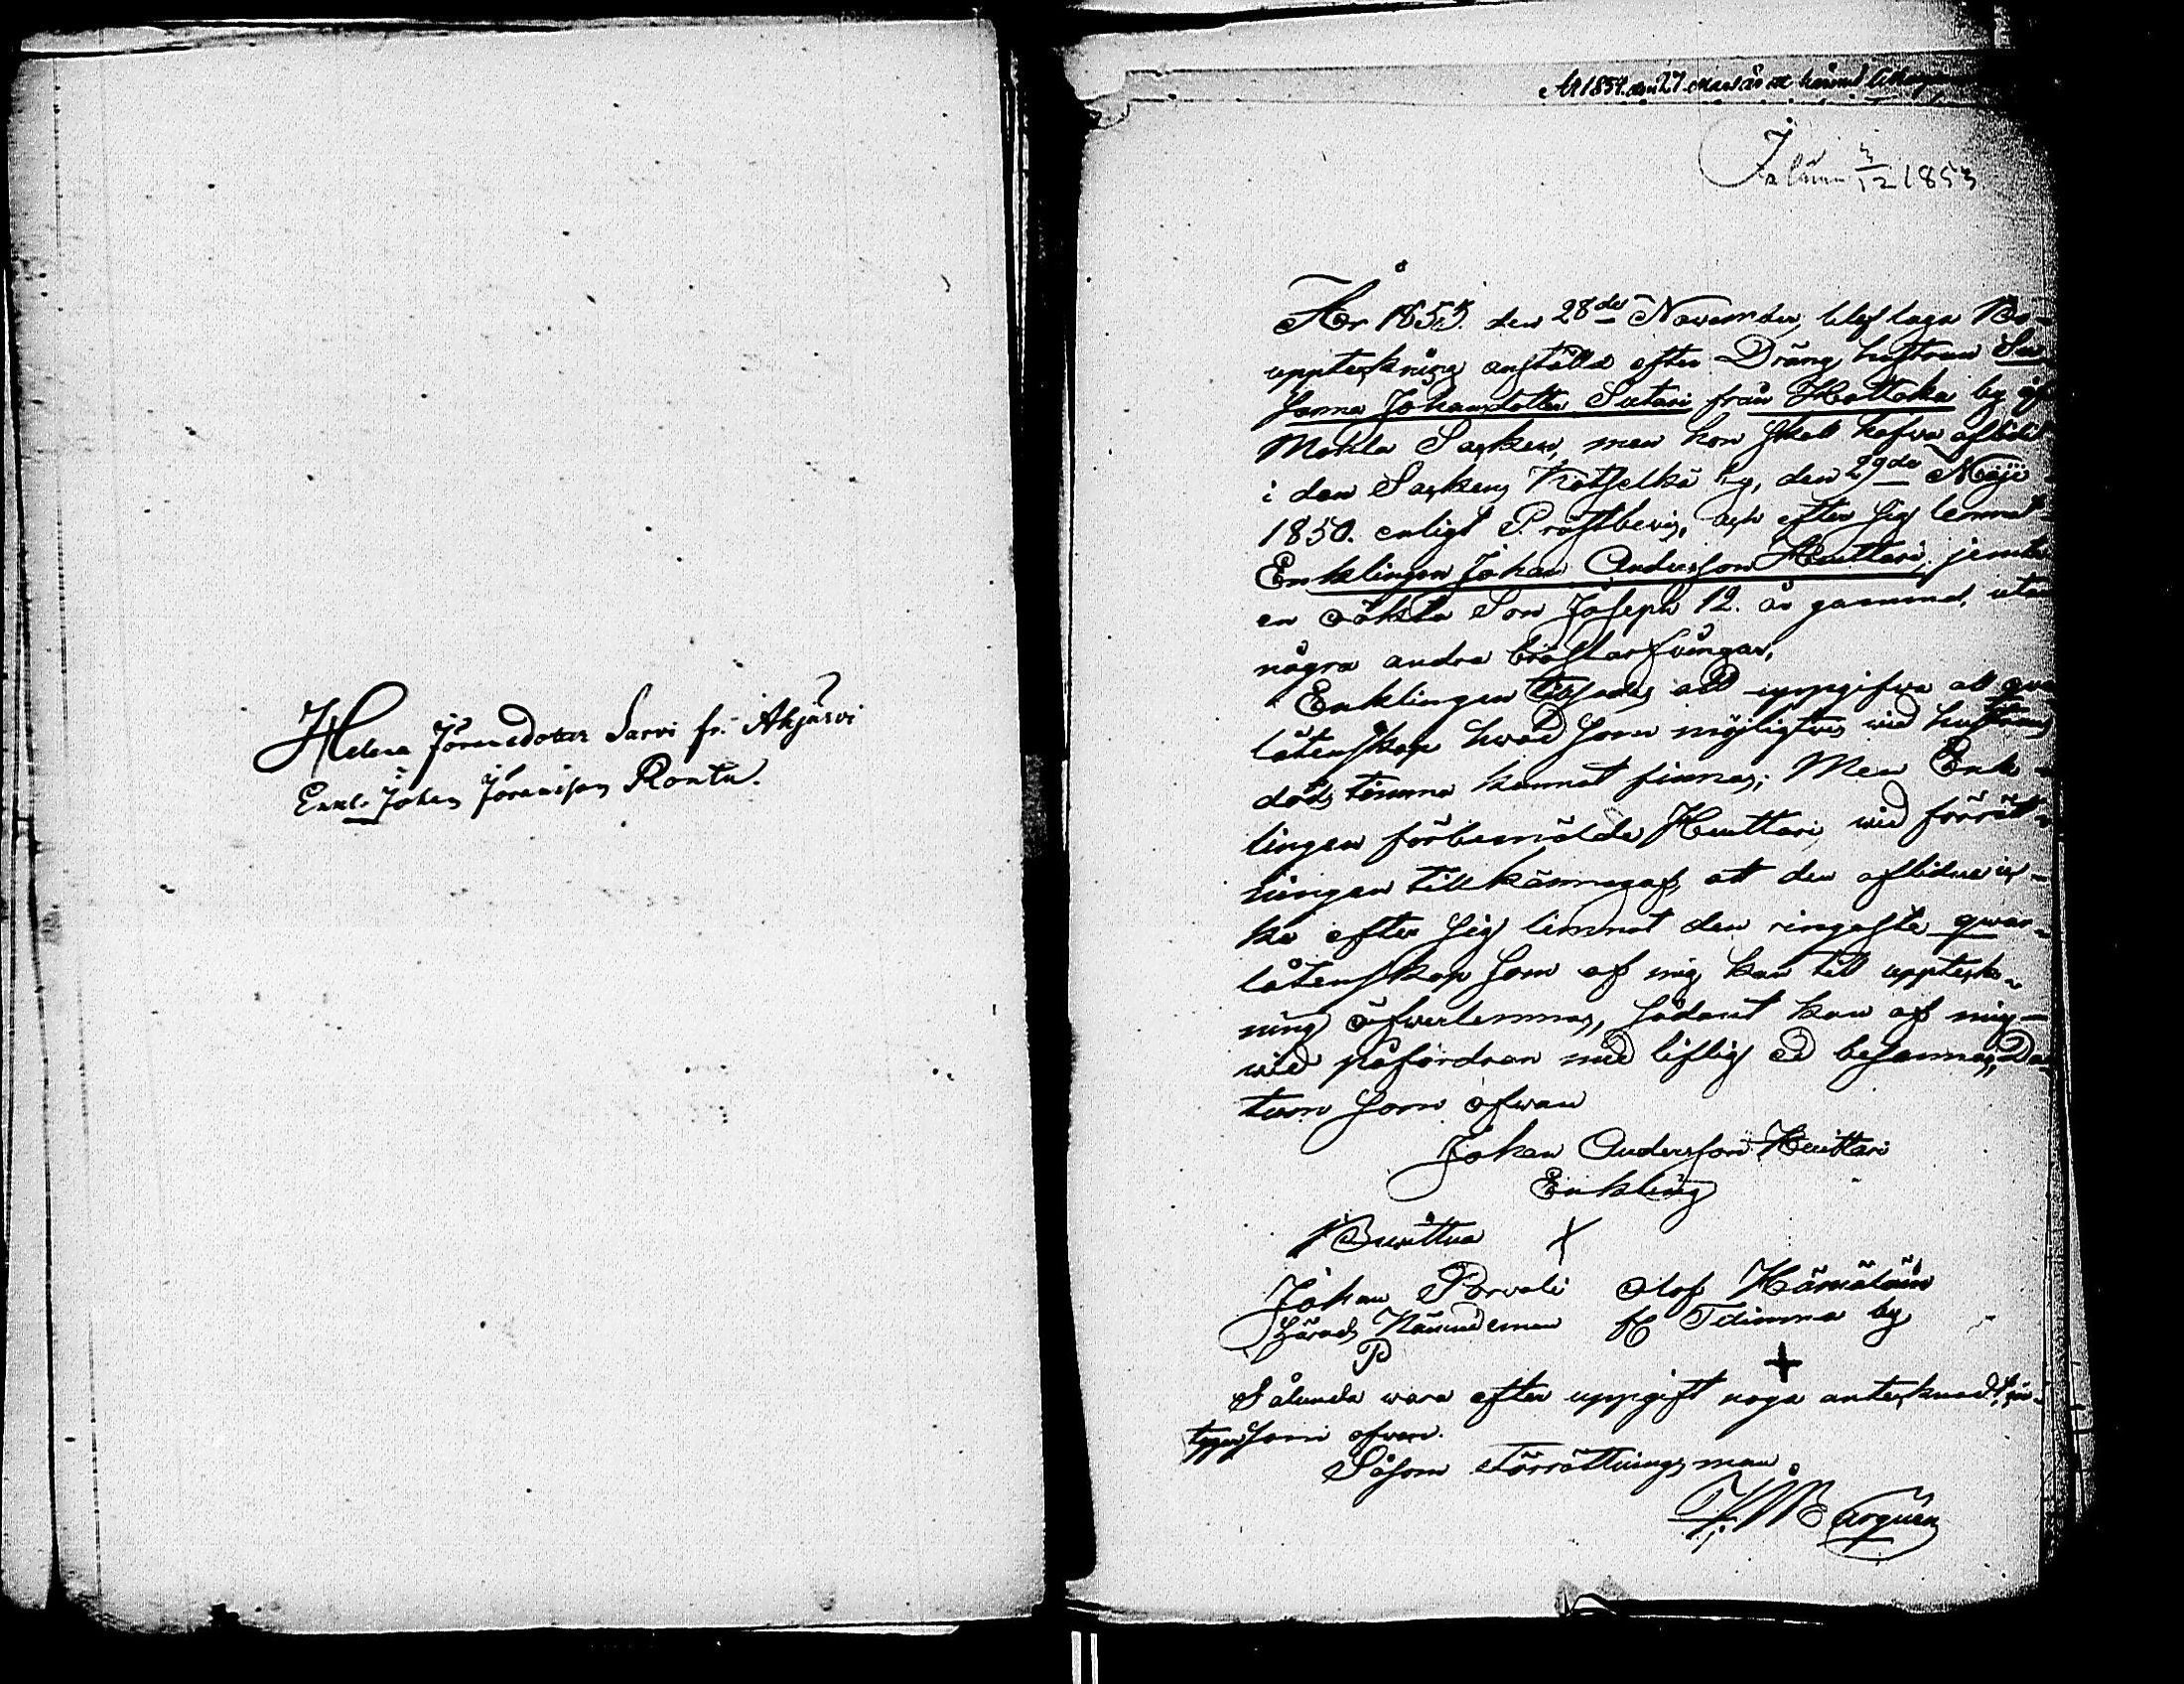 Helena Jöransdotter Sarvi fr. Akjärvi
Enkl. Johan Jöransson Rontu.
År 1854. den 27 Mars är
12 1853
År 1853. den 28de November, blef laga Bo-
uppteckning anstäld efter Dräng hustrun Su
sanna Johansdotter Sutari från Hottoka by af
Mohla Socken, men hon skall hafva aflidit
i den Sockens Kotselkä by, den 29de Maji
1850. enligt Prästbevis, och efter sig lemnat
Enklingen Johan Andersson Huuttari, jemte
en äkta Son Joseph 12. år gammal, utan
några andra bröstarfvingar,
Enklingen tillsades att uppgifva all qvar
låtenskap hvad som möjligtvis vid hustruns
döds timma kunnat finnas; Men Enk-
lingen förbemälde Huuttari vid förrätt-
ningen tillkännagaf, att den aflidne ic-
ke efter sig lemnat den ringaste qwar-
låtenskap som af mig kan till uppteck-
ning öfverlemnas, sådant kan af mig
wid påfordran med liflig ed besannas, Da-
tum som ofwan
Johan Andersson Huittari
Enkling
Bewittna X
Johan Porvali Olof Hämäläin
Härads Nämndeman fr Telimma by
P +
Sålunda vara efter uppgift noga antecknadt, in-
tygar som ofwan.
Såsom Förrättnings man